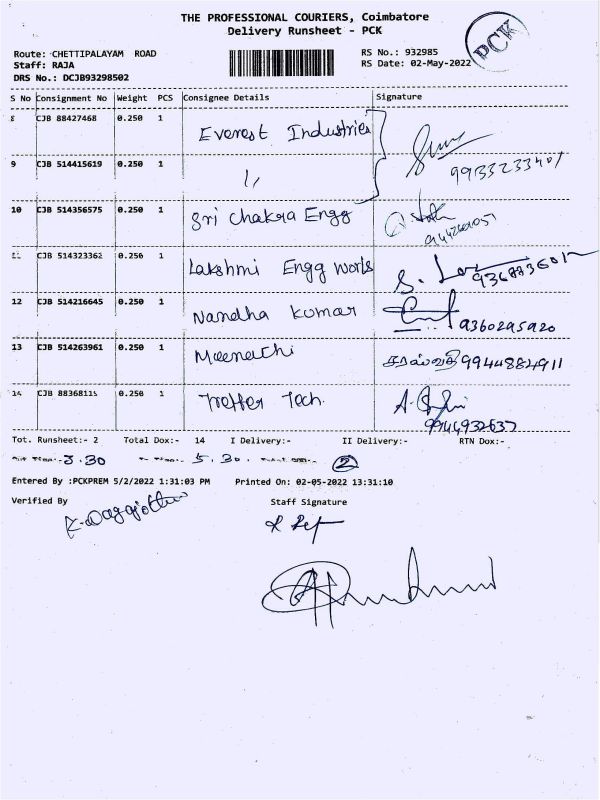 THE PROFESSIONAL COURIERS, Coimbatore
Delivery Runsheet - PCK
PCK
Route: CHETTIPALAYAM ROAD
RS No.: 932985
Staff: RAJA
RS Date: 02-May-2022
DRS No.: DCJB93298502
S No Consignment No Weight PCS Consignee Details Signature
8 CJB 88427468 0.250 1 Everest Industries
9 CJB 514415619 0.250 1 1, 99133233401
10 CJB 514356575 0.250 1 Sri Chakra Engg
11 CJB 514323362 0.250 1 Lakshmi Engg works S.
12 CJB 514216645 0.250 1 Nandha Kumar 9360295920
13 CJB 514263961 0.250 1 Meenatchi சரஸ்வதி 9944884911
14 CJB 88368115 0.250 1 Tech. A. 9944932637
Tot. Runsheet:- 2 Total Dox:- 14 I Delivery:- II Delivery:- RTN Dox:-
3.30 5.30. 2
Entered By :PCKPREM 5/2/2022 1:31:03 PM Printed On: 02-05-2022 13:31:10
Verified By Staff Signature